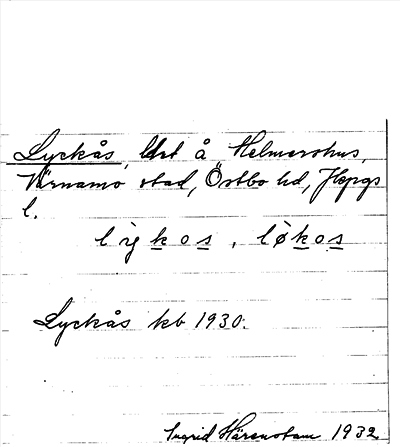 Lyckås, lht å Helmershus,
Värnamo stad, Östbo hd, Jkpgs
l.
lykos, løkos
Lyckås kb 1930.
Ingrid Härenstam 1932